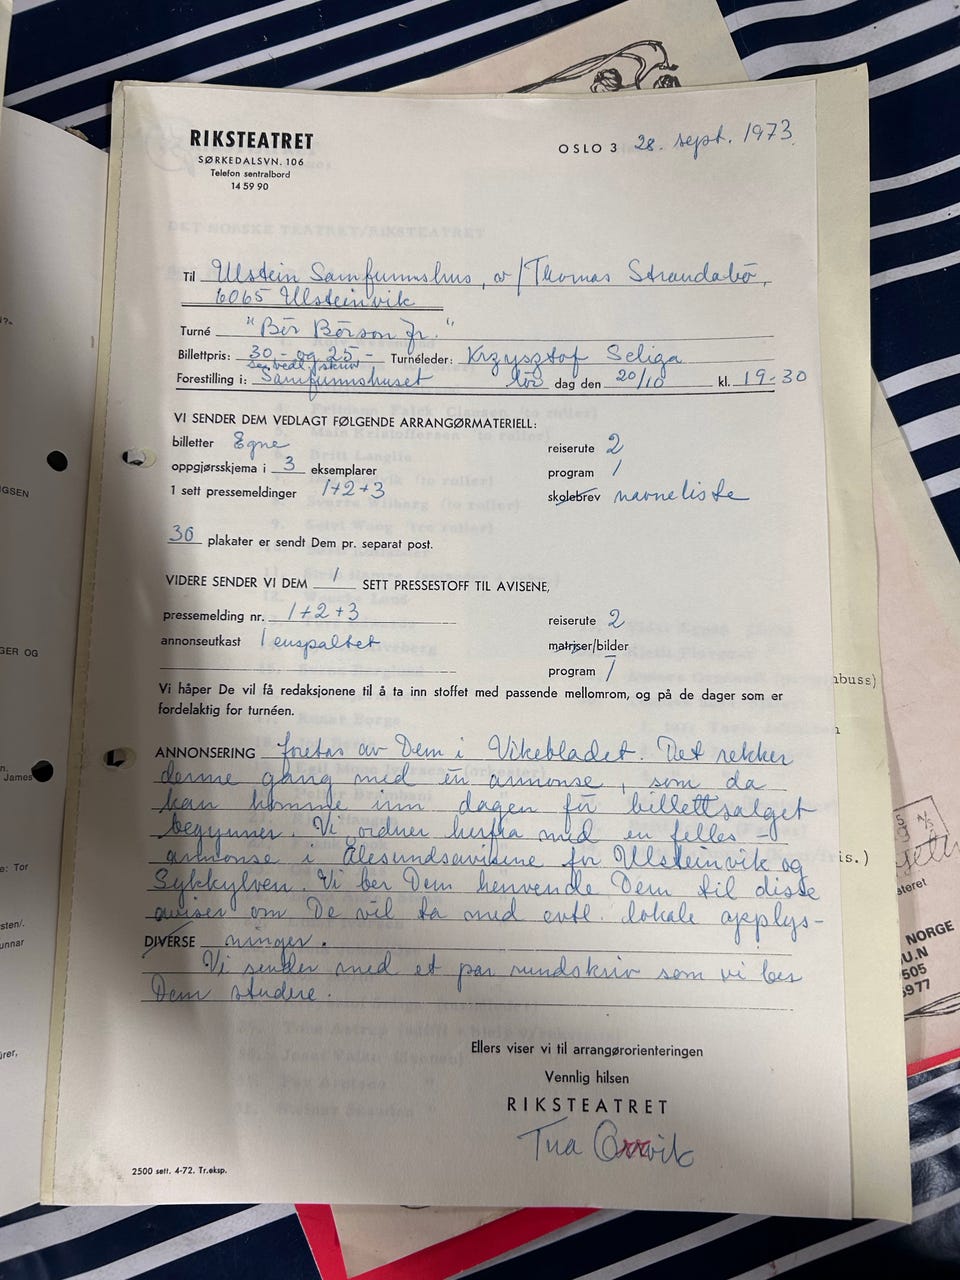 RIKSTEATRET
SØRKEDALSVN. 106
Telefon sentralbord
14 59 90
OSLO 3 28. sept. 1973
Til Ulstein Samfunnshus, v/Thomas Strandabø,
6065 Ulsteinvik
Turné "Bør Børson Jr."
Billettpris: 30,- og 25,- Turnéleder: Krzysztof Seliga
se vedl. skriv
Forestilling i: Samfunnshuset lør dag den 20/10 kl. 19-30
VI SENDER DEM VEDLAGT FØLGENDE ARRANGØRMATERIELL:
billetter Egne reiserute 2
oppgjørsskjema i 3 eksemplarer program 1
1 sett pressemeldinger 1+2+3 skolebrev navneliste
30 plakater er sendt Dem pr. separat post.
VIDERE SENDER VI DEM 1 SETT PRESSESTOFF TIL AVISENE,
pressemelding nr. 1+2+3 reiserute 2
annonseutkast 1 enspaltet matriser/bilder
program 1
Vi håper De vil få redaksjonene til å ta inn stoffet med passende mellomrom, og på de dager som er
fordelaktig for turnéen.
ANNONSERING foretas av Dem i Vikebladet. Det rekker
denne gang med én annonse, som da
kan komme inn dagen før billettsalget
begynner. Vi ordner herfra med en felles-
annonse i Ålesundsavisene for Ulsteinvik og
Sykkylven. Vi ber Dem henvende Dem til disse
aviser om De vil ta med evtl. lokale opplys-
DIVERSE ninger.
Vi sender med et par rundskriv som vi ber
Dem studere.
Ellers viser vi til arrangørorienteringen
Vennlig hilsen
RIKSTEATRET
2500 sett. 4-72. Tr.eksp.
DET NORSKE TEATRET/RIKSTEATRET
GER OG
James
e: Tor
sten/.
unnar
buss)
is.)
ateret
NORGE
505